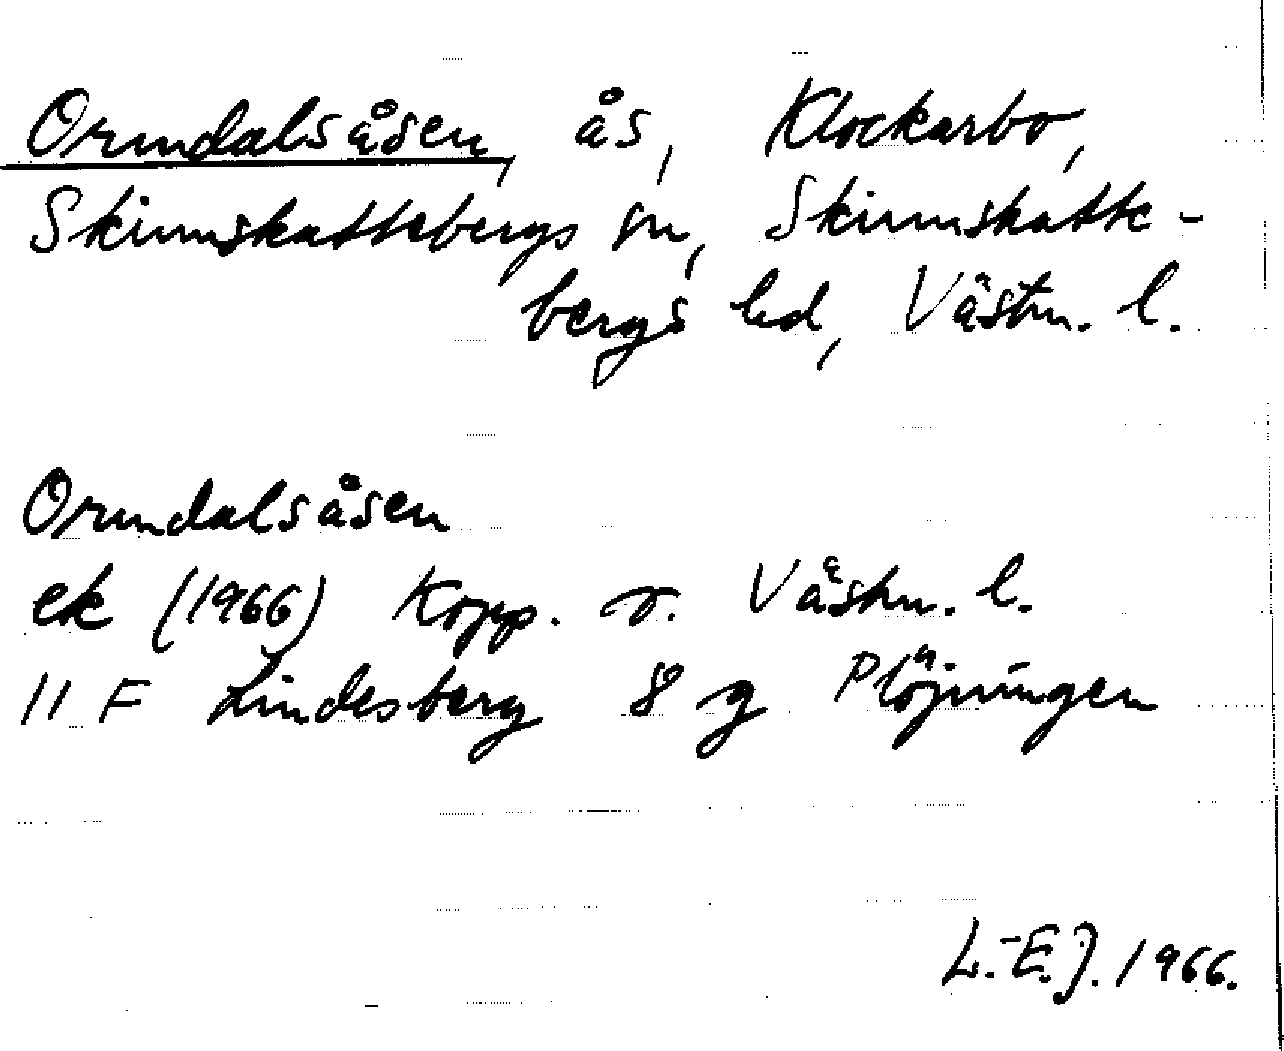 Ormdalsåsen, ås, Klockarbo,
Skinnskattebergs sn, Skinnskatte-
bergs hd, Västm. l.
Ormdalsåsen
ek (1966) Kopp. o. Västm. l.
11 F Lindesberg 8 g Plöjningen
L.-E.J. 1966.